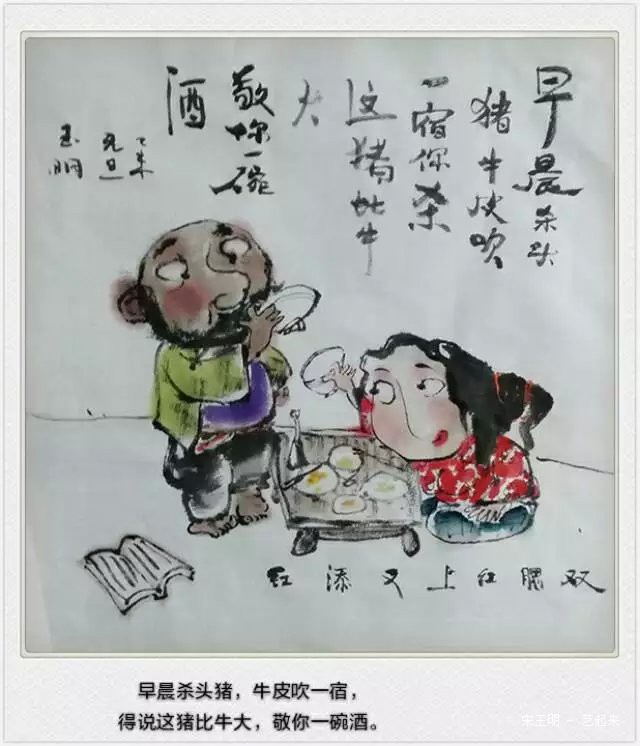 早晨杀头
猪牛皮吹
一宿你杀
这猪比牛
大
敬你一碗
酒
乙未
元旦
玉明
双腮红上又添红
早晨杀头猪，牛皮吹一宿，
得说这猪比牛大，敬你一碗酒。
宋玉明 - 艺起来